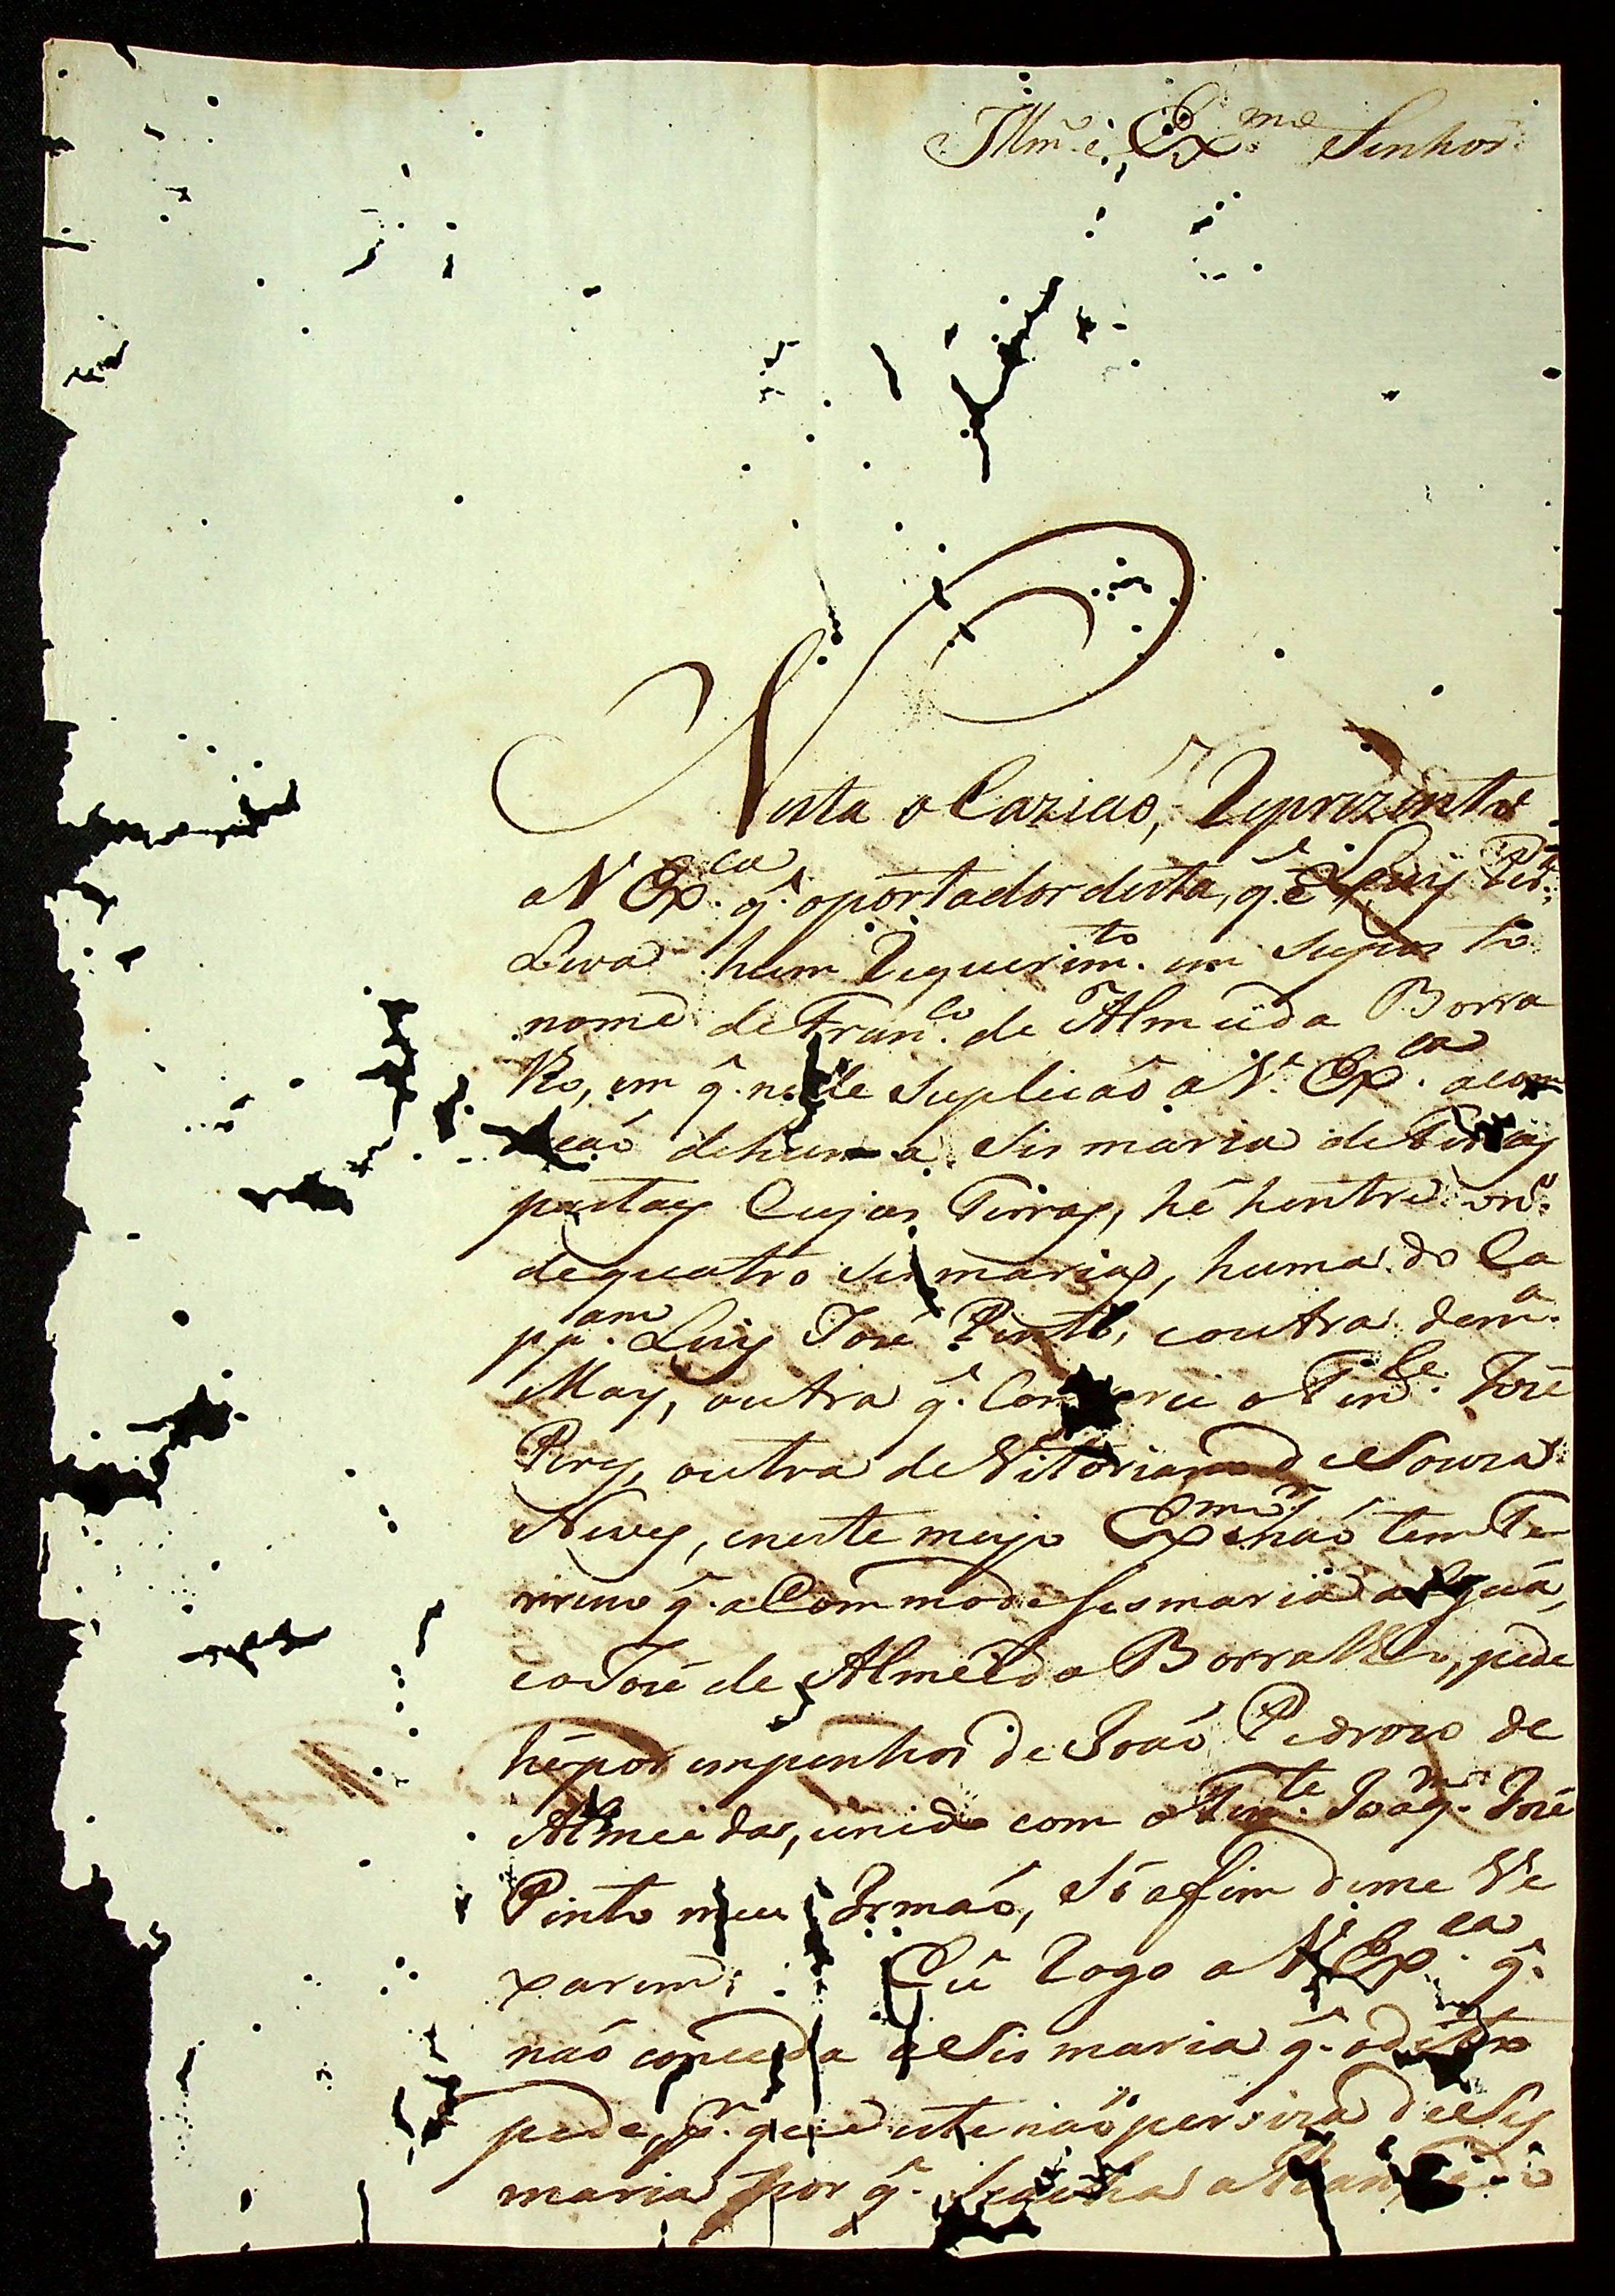 Illmº. e Exmº. Senhor.
Nesta o Caziaõ, Reprezento
a V Exca. q̂. o portador desta, q̂. é Luis
Leva hum Requerimto. em Supos to
nome de Franco. de Almeida Borra
lho, em q̂. nelle Suplicaõ a Vª. Exca. a con
ceçaõ de huma Sis maria de Terras
pastas Cujas Terras, hé hentre
de quatro Sismarias, huma do Ca
ppam. Luis José Pinto, e outra de mª.
May, outra q̂. Com o Tene. José
Pires, outra de Vitoriano de Souza
Neves, e neste meyo Exmo. Sr. naõ tem Te
rreno q̂. a Com mode Sesmaria alguã,
e o José de Almeida Borralho, pede
hé por empenhos de Joaõ Pedrozo de
Almeida, unido com o Tente. Joaqm. José
Pinto meu Irmaõ, Só a fim de me Ve
xarem; Eú Rogo a Vª. Exca. q̂.
naõ conceda a Sis maria q̂. o dito
pede, pr. que este naõ persiza de Sis
maria por q̂.